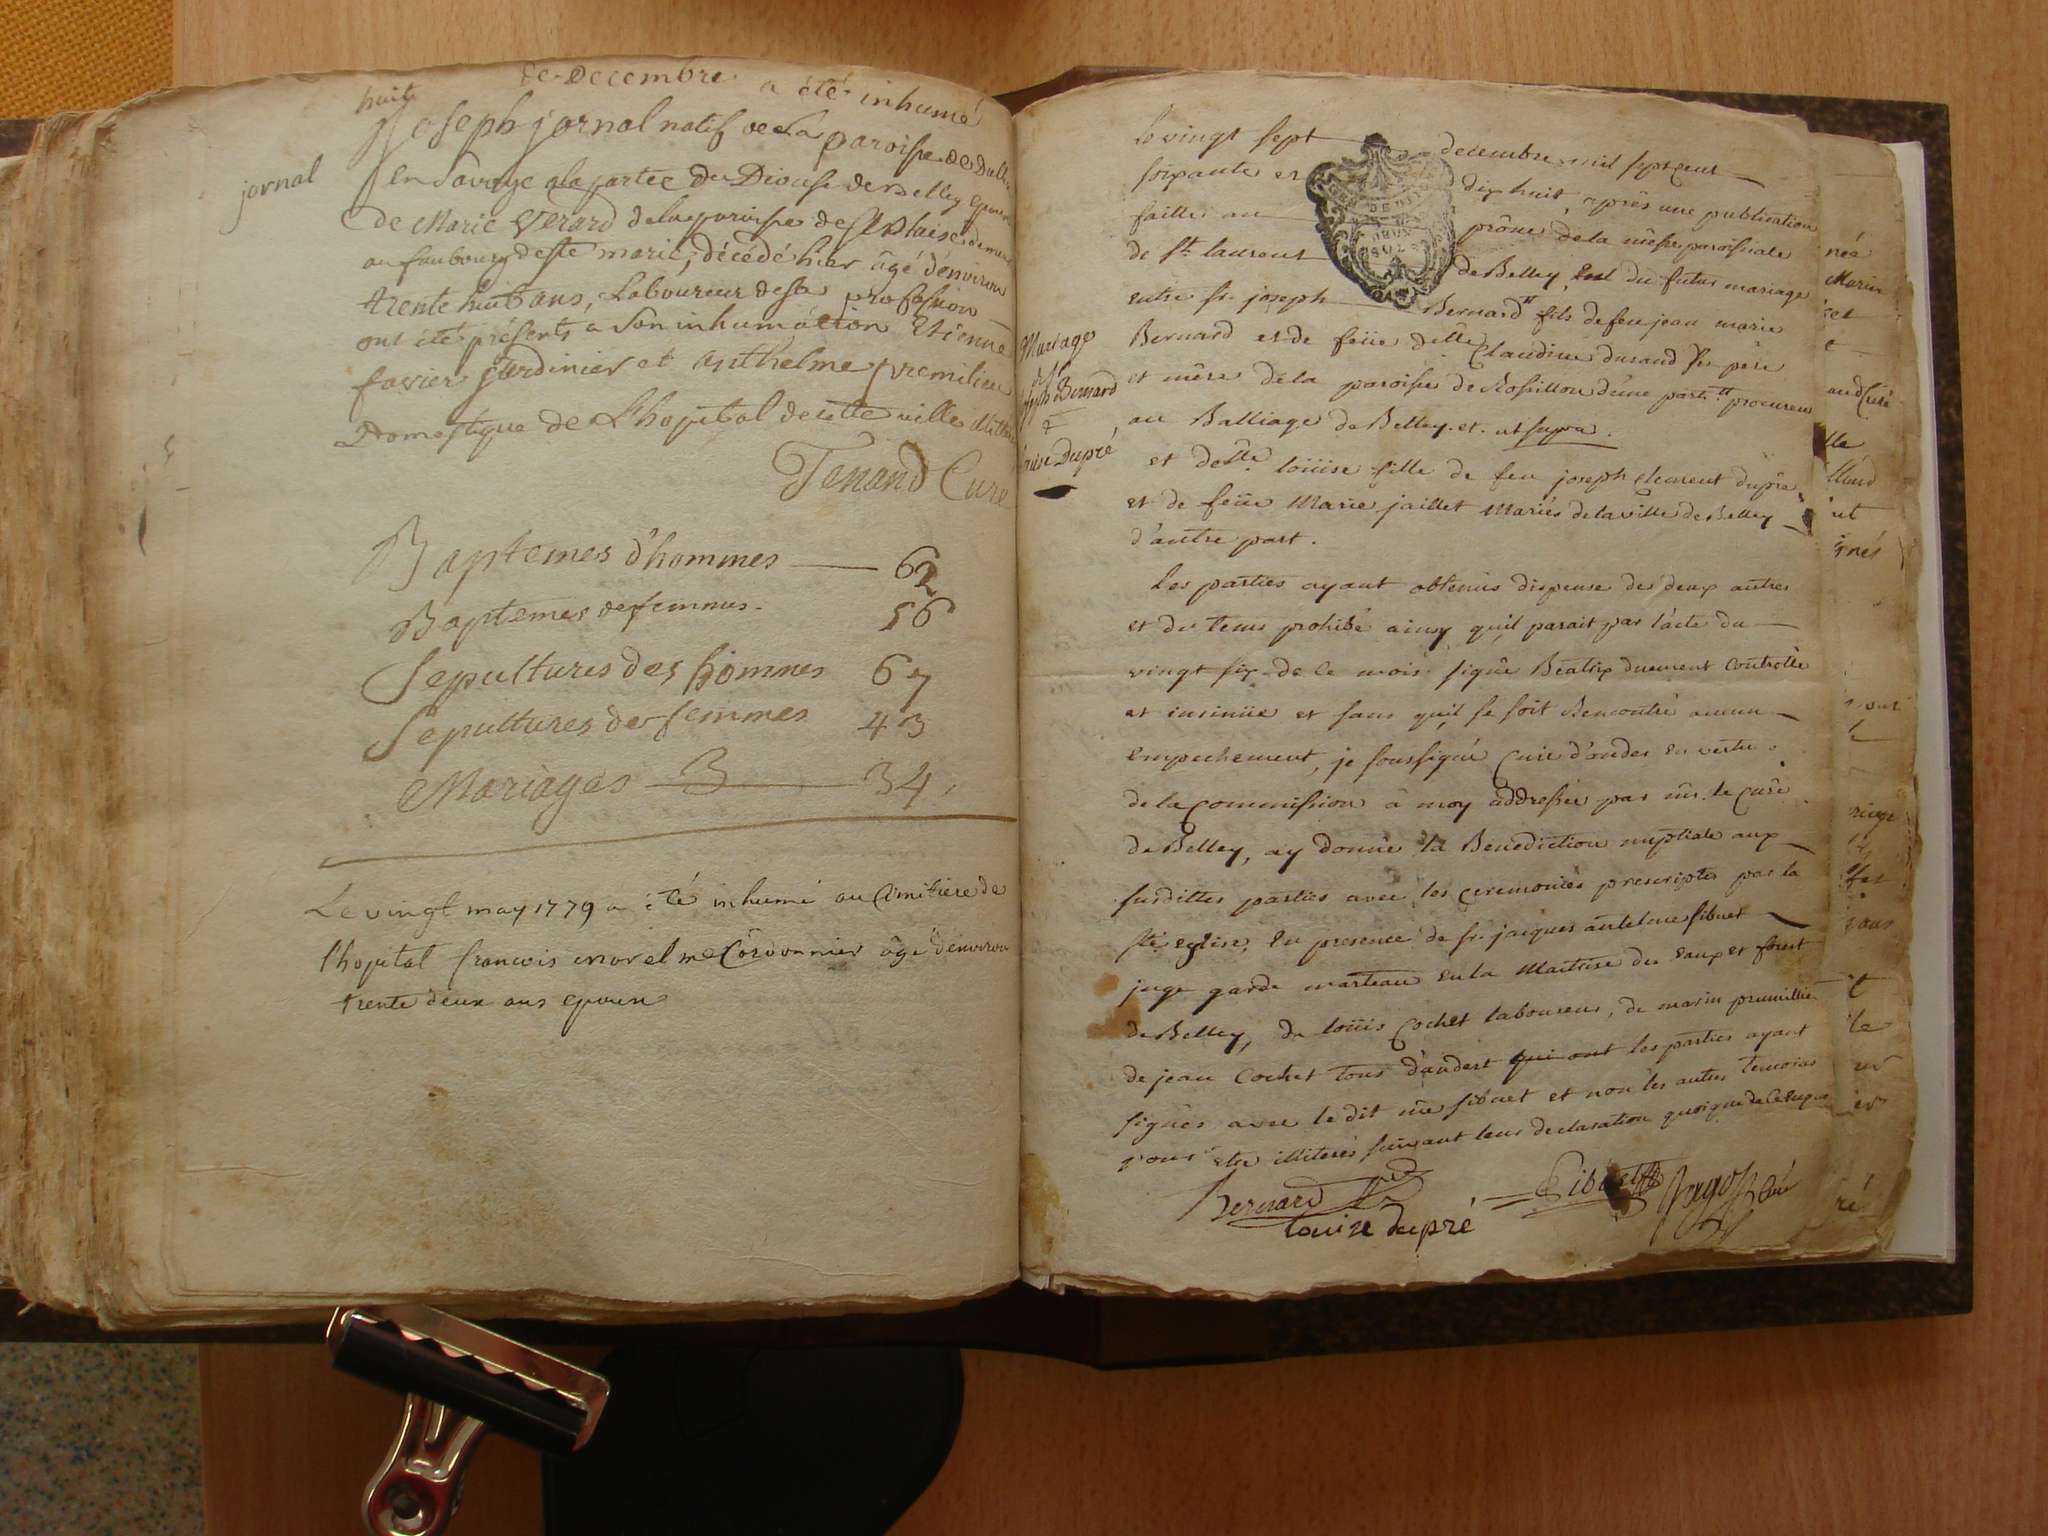 de decembre a été inhumé
huit
joseph jornal natif de la paroisse de
jornal
en Savoye a la partee du Diouse de Belley epoux
de Marie Verard de la paroisse de St Blaise
au faubourg de ste marie, décédé hier âgé d'environ
trente huit ans, Laboureur de sa profession
ont été présents a son inhumation Etienne
favier jardinier et anthelme premilieu
Domestique de l'hopital de cette ville
Tenand Curé
Baptemes d'hommes — 62
Baptemes de femmes. 56
Sepultures des hommes 67
Sepultures de femmes 43
Mariages — 34
Le vingt may 1779 a été inhumé au Cimitiere de
l'hopital francois Cordonnier âgé d'environ
trente deux ans epoux
Le vingt sept decembre mil sept cent
soixante et dix huit, après une publication
faitte au prône de la messe paroissiale
de St. laurent de Belley, du futur mariage
entre sr. joseph Bernard fils de feu jean marie
Bernard et de feüe delle Claudine durand ses père
et mère de la paroisse de Rossillon d'une part procureur
au Balliage de Belley et ut supra.
Mariage
de
joseph Bernard
et
Louise Dupré
et delle loüise fille de feu joseph clement dupré
et de feüe Marie jaillet Mariés de la ville de Belley
d'autre part.
Les parties ayant obtenus dispense des deux autres
et du tems prohibé ainsy qu'il parait par l'acte du
vingt six de ce mois signé Béatrix duement Controllé
et insinüé et sans qu'il se soit Rencontré aucun
empechement, je soussigné Curé d'andert en vertu
de la Commission à moy addressée par mr. le Curé
de Belley, ay donné la Benediction nuptiale aux
susdittes parties avec les ceremonies prescriptes par la
ste eglise, en presence de sr. jacques antelme sibuet
juge garde marteau en la Maitrise des eaux et forest
de Belley, de loüis Cochet laboureur, de marin premillieu
de jean Cochet tous d'andert qui ont les parties ayant
signés avec le dit mr sibuet et non les autres temoins
pour etre illiterés suivant leur declaration quoique de ce requis
Bernard
Sibuet
louise dupré
née
Marie
et